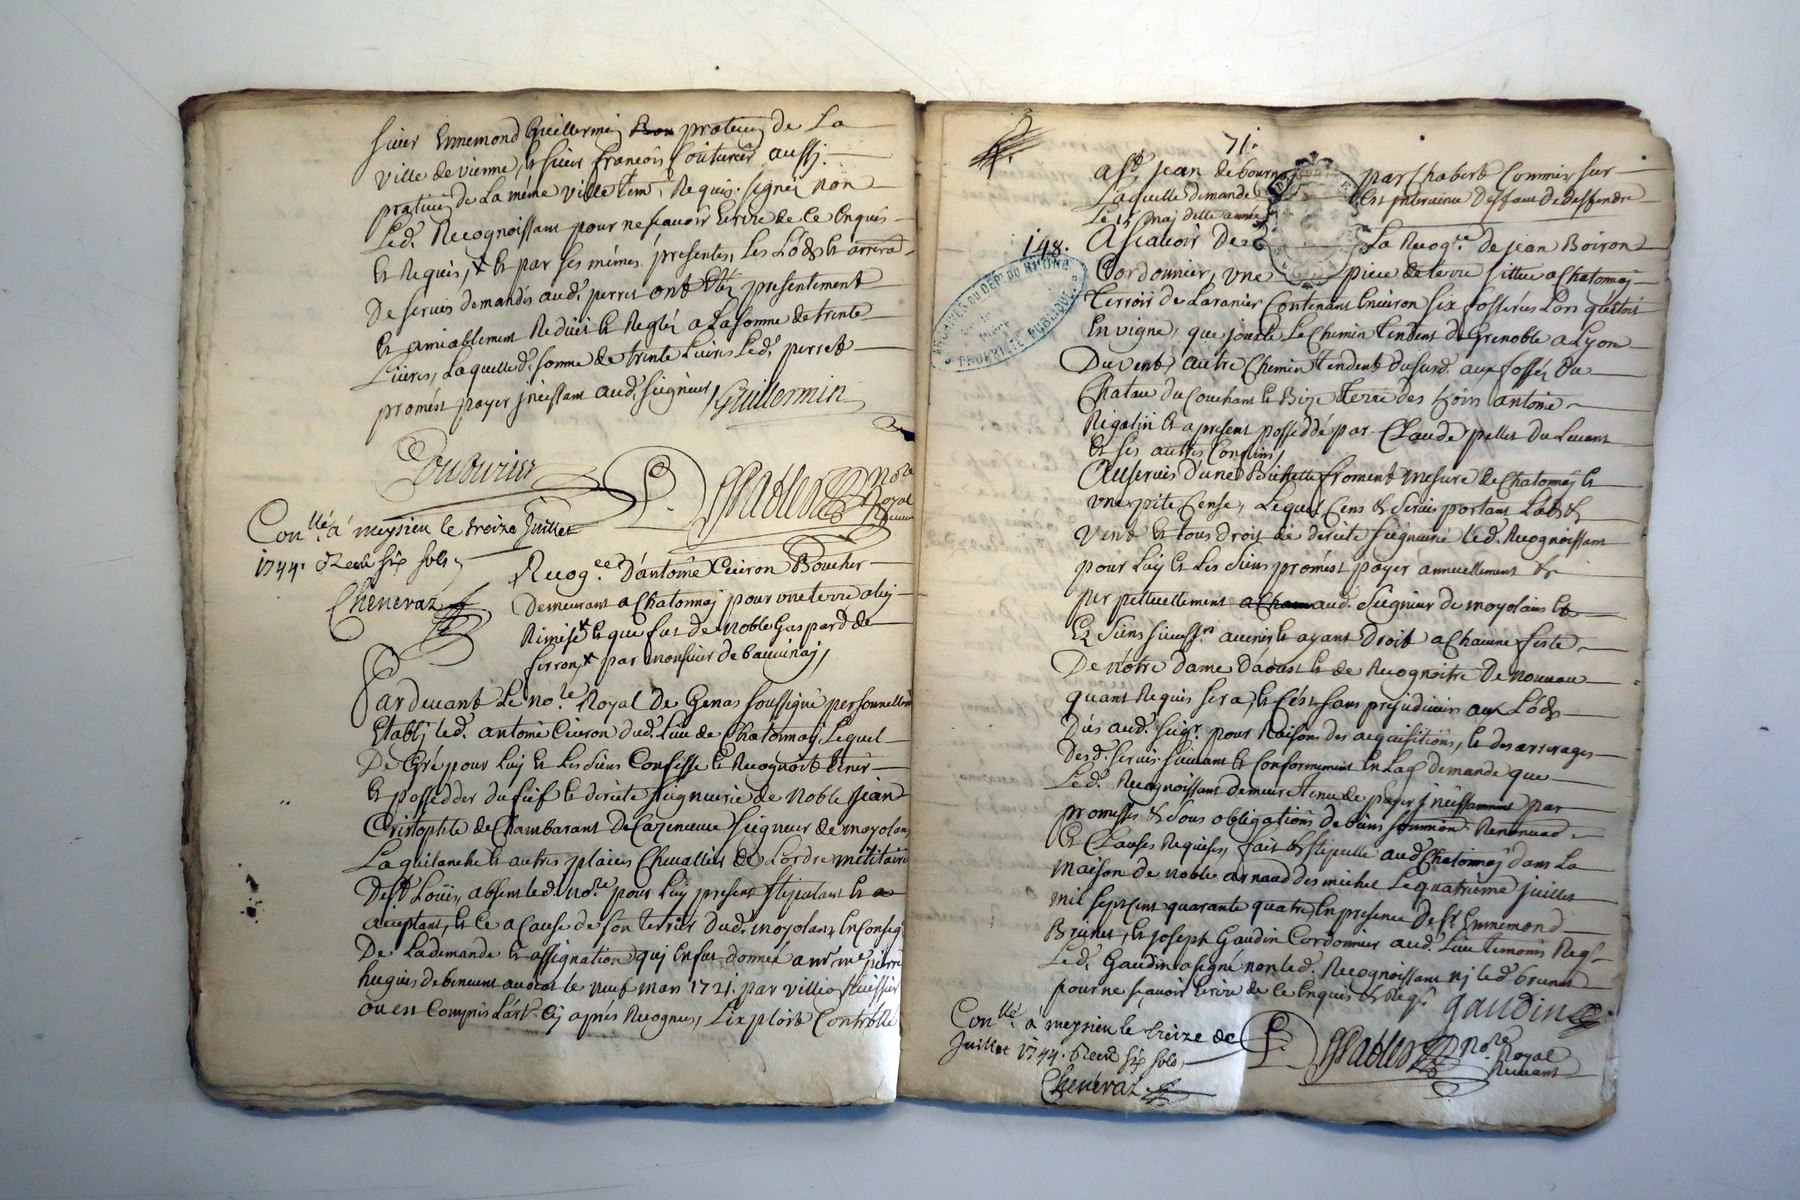 sieur Ennemond Guillermin Bou praticien de La
ville de vienne, & sieur francois Couturier aussi
praticien de La meme ville tem. Requis. signés non
Led. Recognoissant pour ne scavoir Ecrire de ce Enquis
Et Requis, & par ses mémes presentes, Les Lods & arrerad.
De servis demandés aud. perret ont Eté presentement
Et amiablement Reduit & Reglés a La somme de trente
Livres, Laquelle d. somme de trente Livres Led. perret
promést payer incéssant aud. seigneur Guillermin
Couturier
Nore Royal
Con.llé a meysieu le treize Juillet
1744. Receu six sols
Cheneraz
Recog.ce d'antoine Boucher
Demeurant a Chatonnay pour une terre a luy
Remise & que fut de Noble Gaspard de
par monsieur de
Pardevant Le no.re Royal De Genas soussigné personnellem.
Etably led. antoine dud. Lieu de Chatonnay Lequel
De Gré pour Luy & Les siens Confesse & Recognoit tenir
Et possedder du fief & directe seigneurie de Noble Jean
Cristophle de Chambarant De Cazeneuve seigneur de moyolans
La & autres places Chevallier de Lordre militaire
De St Louis, absent led. no.re pour Luy present stipulant & a
acceptant, & ce a Cause de son terrier dud. moyolans, En conseq.
De La demande & assignation quj En fut donneé a mr me pierre
hugues de avocat le neuf mars 1721. par huissier
ou est Compris L'art. Cy aprés Recognu, L'exploit Controllé
71.
a St Jean de bournay par Chabert Commis sur
Laquelle demande Est intervenue Deffaut de deffendre
Le 15 may dette année
148. A scavoir De La Recog.ce de jean Boiron
Cordonnier, une piece de terre sittuée a Chatonnay
Terroir de Laranier Contenant Environ six fosserées Lors quettoit
En vigne, que jouxte Le Chemin tendent de Grenoble a Lyon
Du vent, autre Chemin tendent dusurd. aux fossés du
Chatau du Couchant & Bize Terre des hoirs antoine
Rigolin & a present posseddé par Claude pellet du Levant
Et ses autres Confins,
Au servis d'une Bichette froment mesure de Chatonnay &
une pite Cense, Lequel Cens & servis portant Lods &
Vend & tous droit de directe seigneurie led. Recognoissant
pour Luy & Les siens promést payer annuellement &
perpettuellement a Cham aud. seigneur de moyolans &
Es siens success.rs avenir & ayant Droit a Chacune feste
De nôtre dame Daoust & de Recognoitre De nouveau
quant Requis sera, & C'est sans prejudicier aux Lods
Dus aud. seig.r pour Raisons des acquisitions, & des arrerages
Desd. servis suivant & conformement En Lad. demande que
Led. Recognoissant demeure tenu de payer incéssamment par
promesses & sous obligations de biens soumion Renonciad.
Et Clauses Requises, fait & stipullé aud Chatonnay dans La
maison de noble arnaud des michel Le quatrieme juillet
mil sept Cent quarante quatre, En presence de sr. Ennemond
Brunet, & joseph Gaudin Cordonnier aud. Lieu temoins Req.
Led. Gaudin a signé non led. Recognoissant nj led. brunet
pour ne scavoir Ecrire de ce Enquis & Req. gaudin
Con.llé a meysieu le treize de
Juillet 1744. Receu six sols
Cheneraz
No.re Royal
Recevant
ARCHIVES DU DEPT DU RHÔNE
PROPRIÉTÉ PUBLIQUE